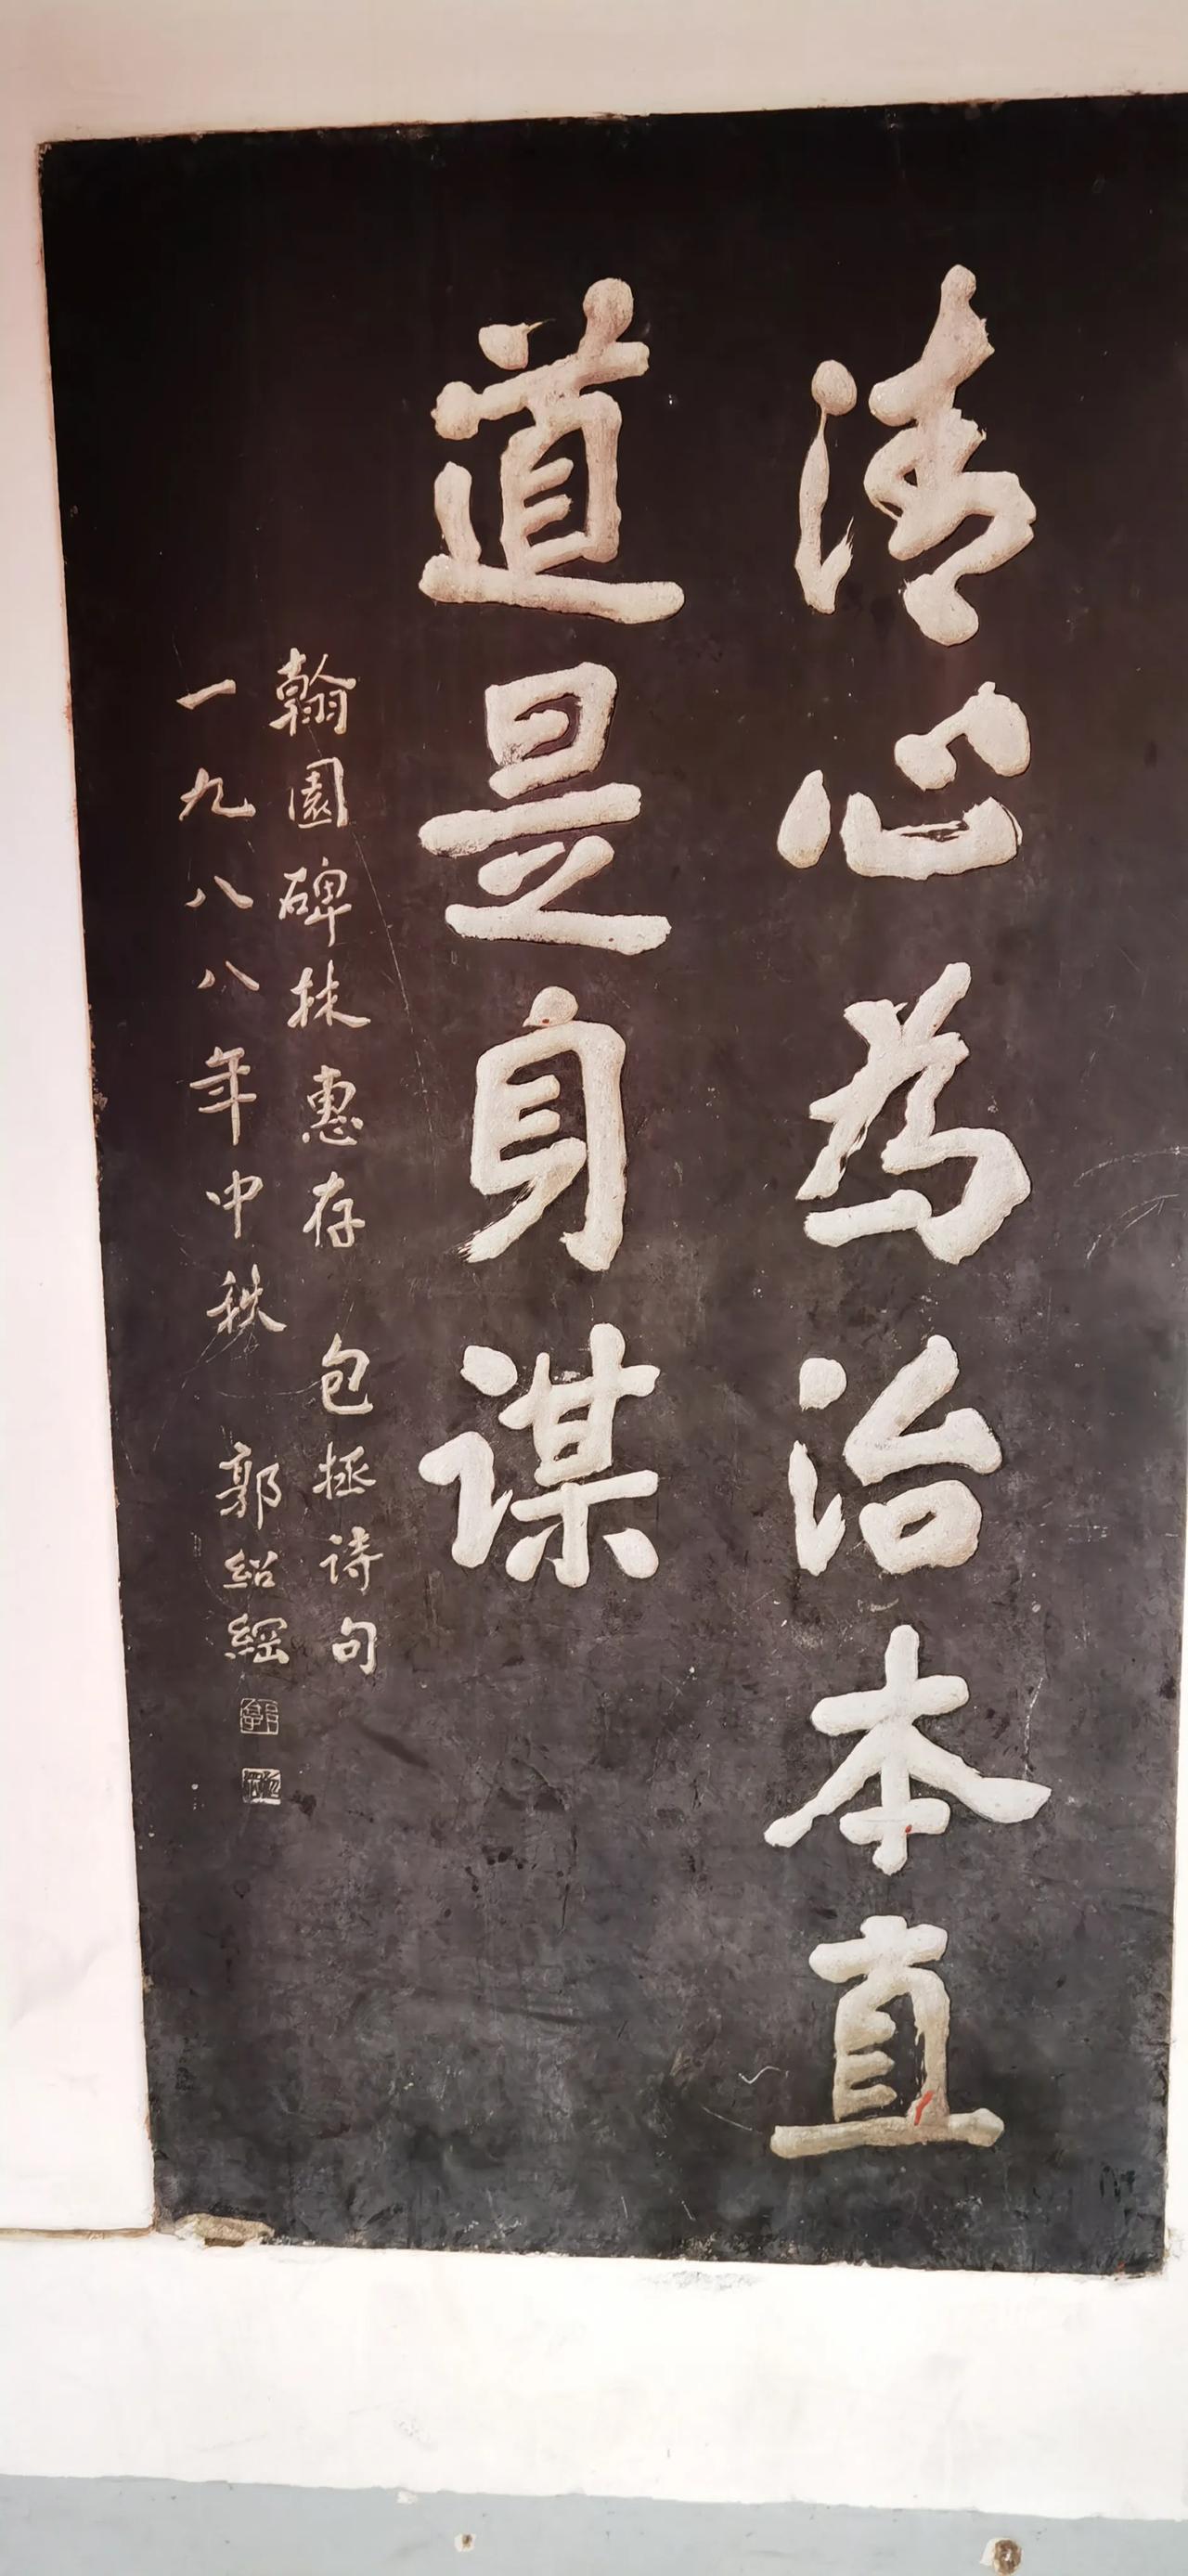 清心为治本直
道是身谋
翰園碑林惠存 包拯诗句
一九八八年中秋 郭绍綱